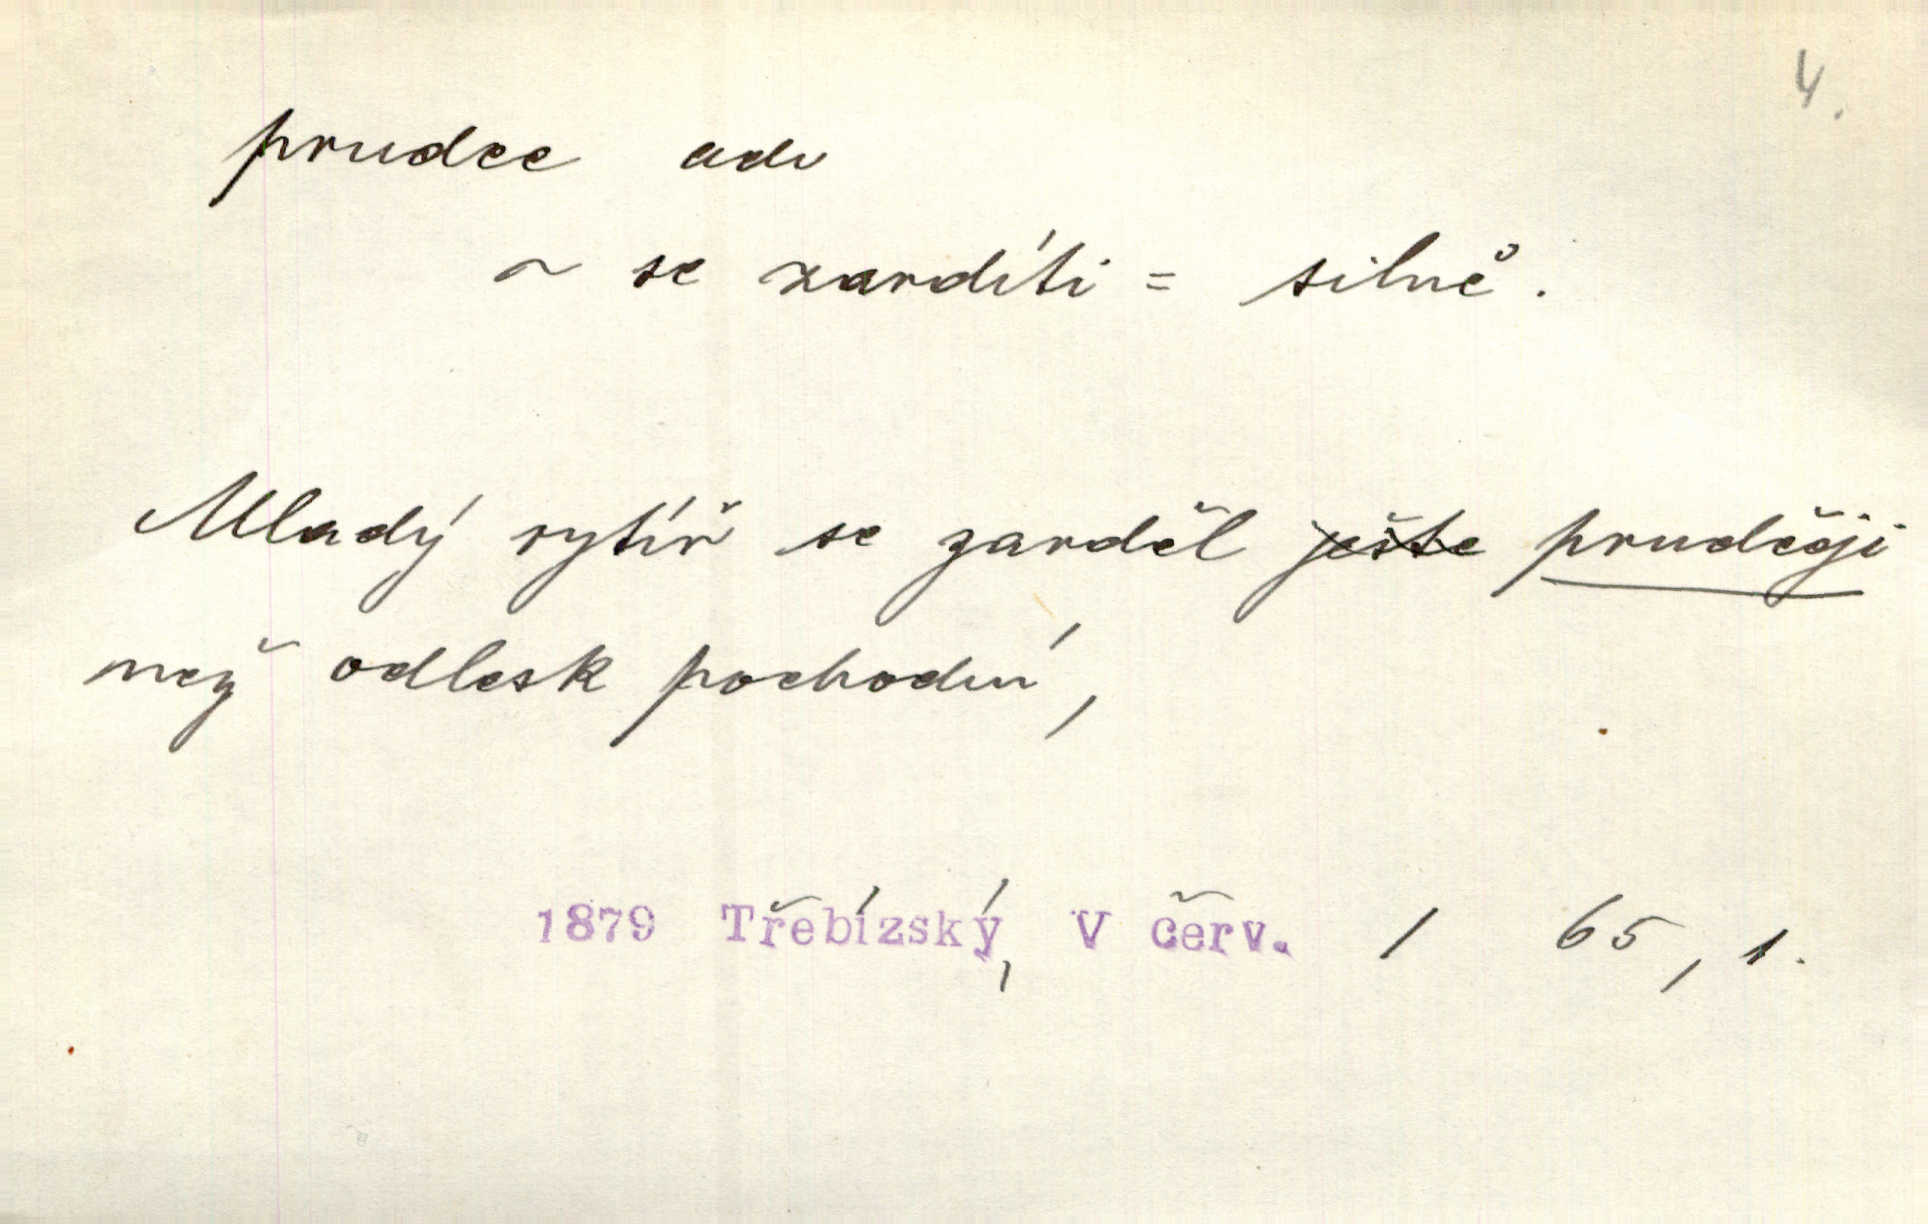 4.
prudce adv
~ se zardíti = silně.
Mladý rytíř se zarděl ješte prudčěji
než odlesk pochodní,
1879 Třebízský, V červ. 1 65, 1.